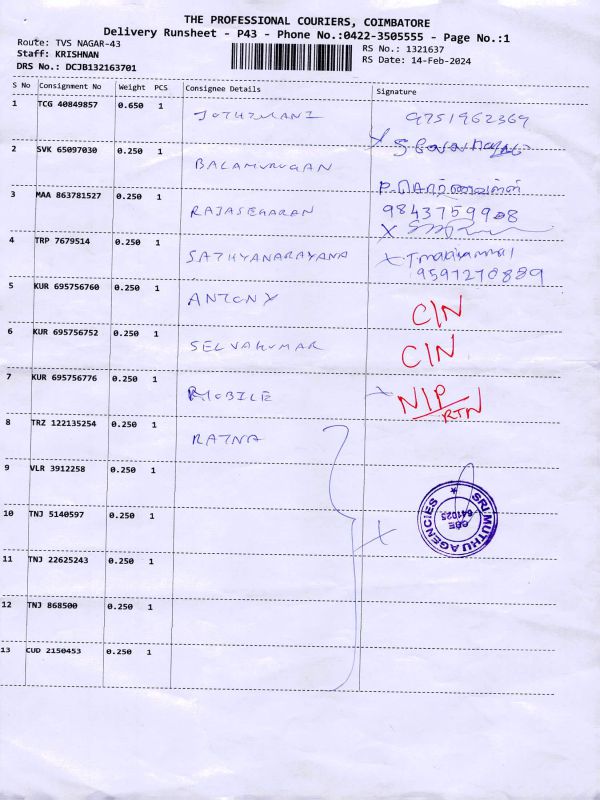 THE PROFESSIONAL COURIERS, COIMBATORE
Delivery Runsheet - P43 - Phone No.:0422-3505555 - Page No.:1
Route: TVS NAGAR-43
RS No.: 1321637
Staff: KRISHNAN
RS Date: 14-Feb-2024
DRS No.: DCJB132163701
S No Consignment No Weight PCS Consignee Details Signature
1 TCG 40849857 0.650 1 JOTHIMANI 9751962369
2 SVK 65097030 0.250 1 BALAMURUGAN
3 MAA 863781527 0.250 1 RAJASEGARAN 9843759908
4 TRP 7679514 0.250 1 SATHYANARAYANA X T mariyammal
9597270889
5 KUR 695756760 0.250 1 ANTONY C/N
6 KUR 695756752 0.250 1 SELVAKUMAR C/N
7 KUR 695756776 0.250 1 MOBILE X N/P
RTN
8 TRZ 122135254 0.250 1 RATNA
9 VLR 3912258 0.250 1
10 TNJ 5140597 0.250 1 X
SRI MUTHU AGENCIES
CBE
641025
11 TNJ 22625243 0.250 1
12 TNJ 868500 0.250 1
13 CUD 2150453 0.250 1